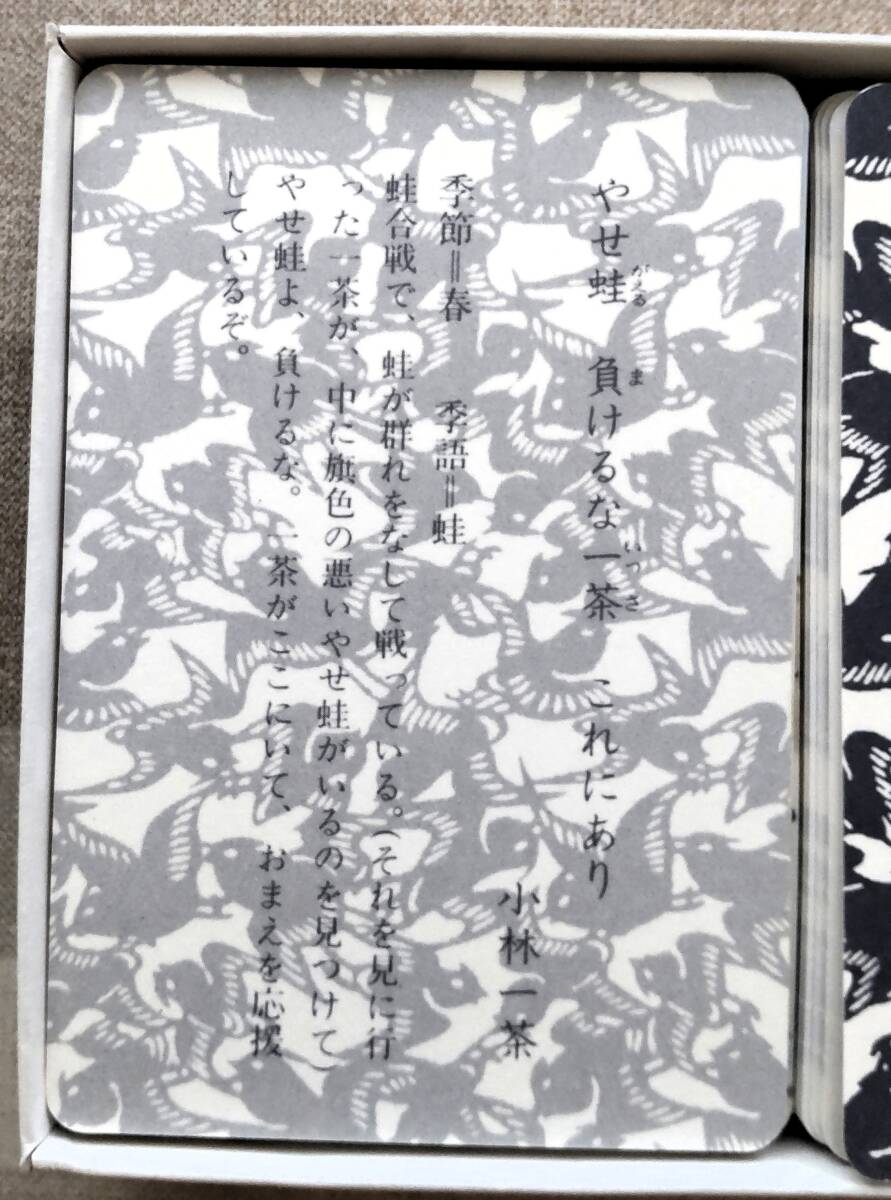 やせ蛙 負けるな一茶 これにあり
小林一茶
季節＝春 季語＝蛙
蛙合戦で、蛙が群れをなして戦っている。(それを見に行
った一茶が、中に旗色の悪いやせ蛙がいるのを見つけて)
やせ蛙よ、負けるな。一茶がここにいて、おまえを応援
しているぞ。
がえる
ま
いっさ